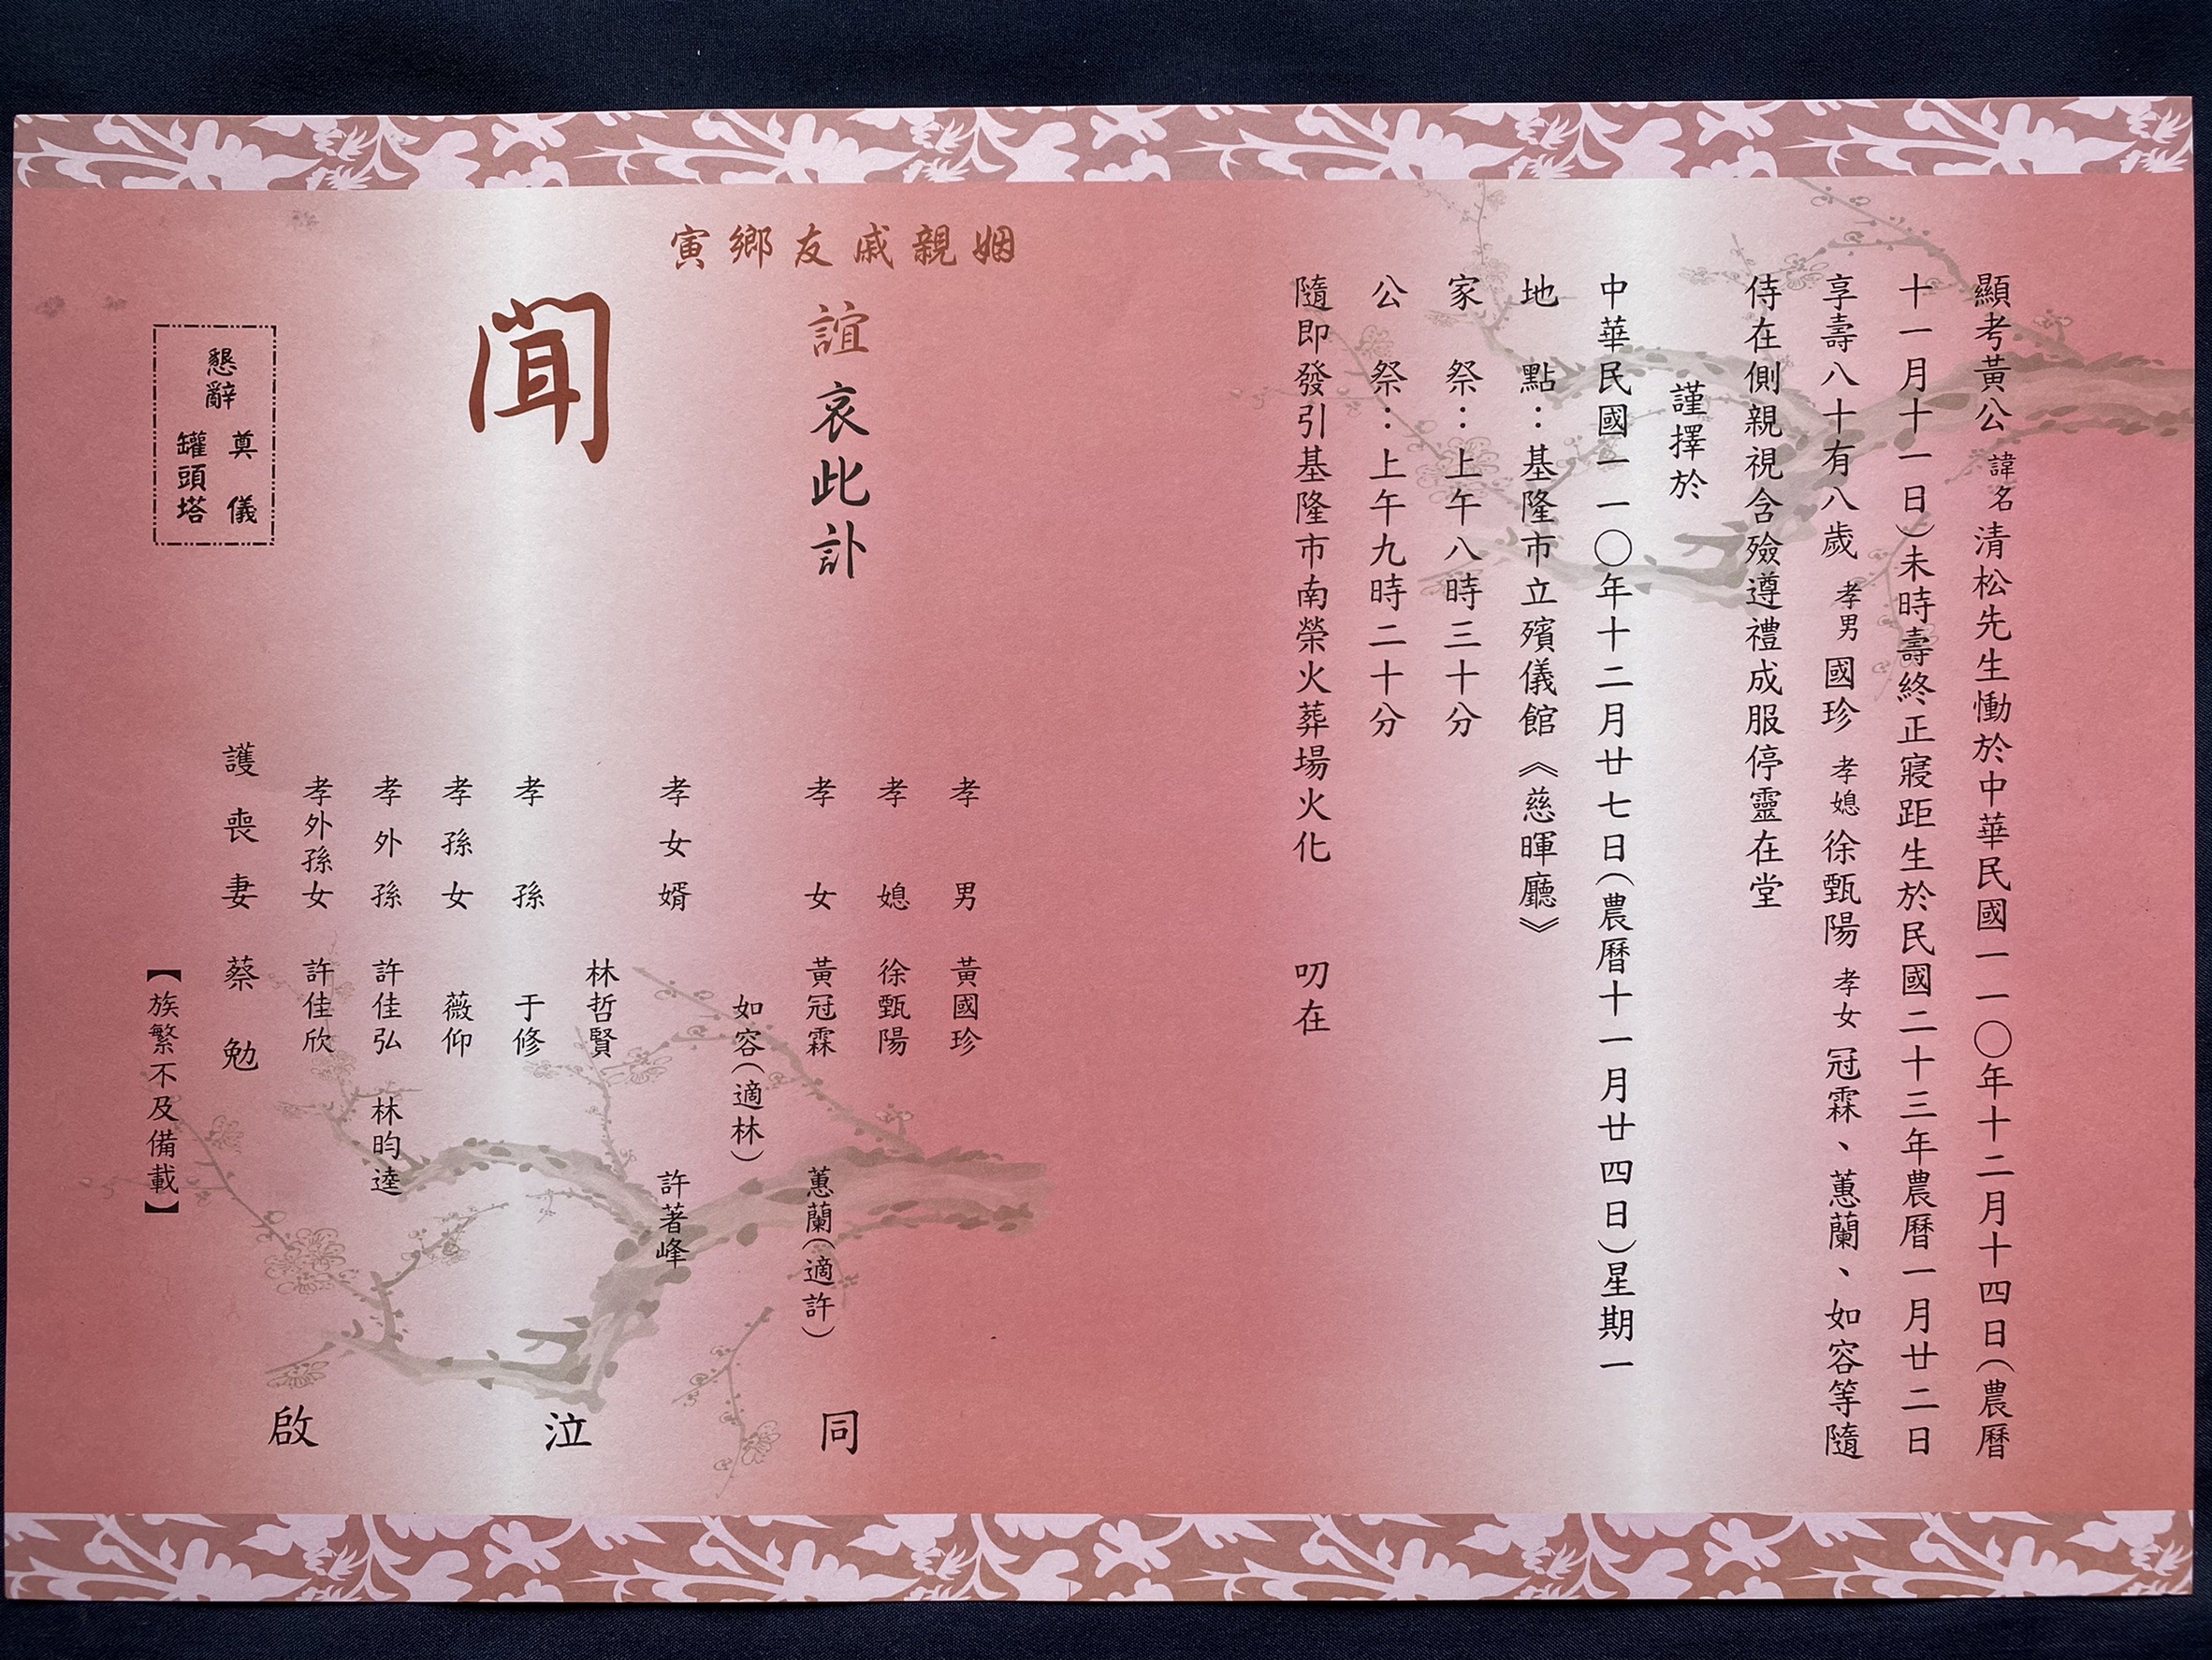 顯考黃公諱名清松先生慟於中華民國一一〇年十二月十四日(農曆
十一月十一日)未時壽終正寢距生於民國二十三年農曆一月廿二日
享壽八十有八歲孝男國珍孝媳徐甄陽孝女冠霖、蕙蘭、如容等隨
侍在側親視含殮遵禮成服停靈在堂
謹擇於
中華民國一一〇年十二月廿七日(農曆十一月廿四日)星期一
地點：基隆市立殯儀館《慈暉廳》
家祭：上午八時三十分
公祭：上午九時二十分
隨即發引基隆市南榮火葬場火化 叨在
姻親戚友鄉寅
誼哀此訃
聞
孝男 黃國珍
孝媳 徐甄陽
孝女 黃冠霖 蕙蘭(適許)
如容(適林)
孝女婿 許著峰
林哲賢
孝孫 于修
孝孫女 薇仰
孝外孫 許佳弘 林昀逵
孝外孫女 許佳欣
護喪妻 蔡勉
【族繁不及備載】
同泣啟
懇辭
奠儀
罐頭塔